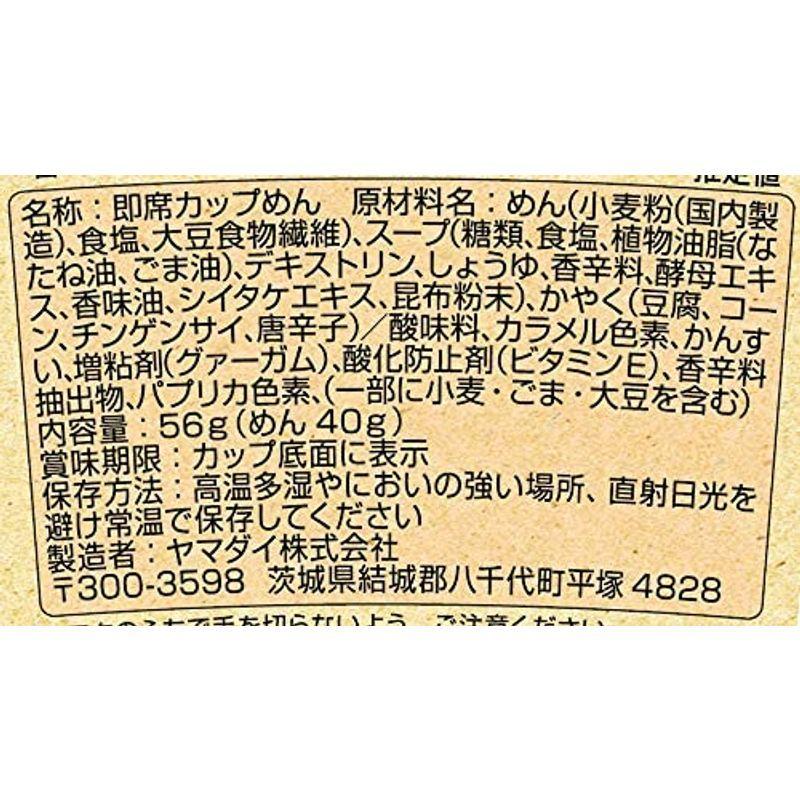 推定値
名称：即席カップめん　原材料名：めん(小麦粉(国内製
造)、食塩、大豆食物繊維)、スープ(糖類、食塩、植物油脂(な
たね油、ごま油)、デキストリン、しょうゆ、香辛料、酵母エキ
ス、香味油、シイタケエキス、昆布粉末)、かやく(豆腐、コー
ン、チンゲンサイ、唐辛子)／酸味料、カラメル色素、かんす
い、増粘剤(グァーガム)、酸化防止剤(ビタミンE)、香辛料
抽出物、パプリカ色素、(一部に小麦・ごま・大豆を含む)
内容量：56g(めん 40g)
賞味期限：カップ底面に表示
保存方法：高温多湿やにおいの強い場所、直射日光を
避け常温で保存してください
製造者：ヤマダイ株式会社
〒300-3598　茨城県結城郡八千代町平塚 4828
のふちで手を切らないよう、ご注意ください